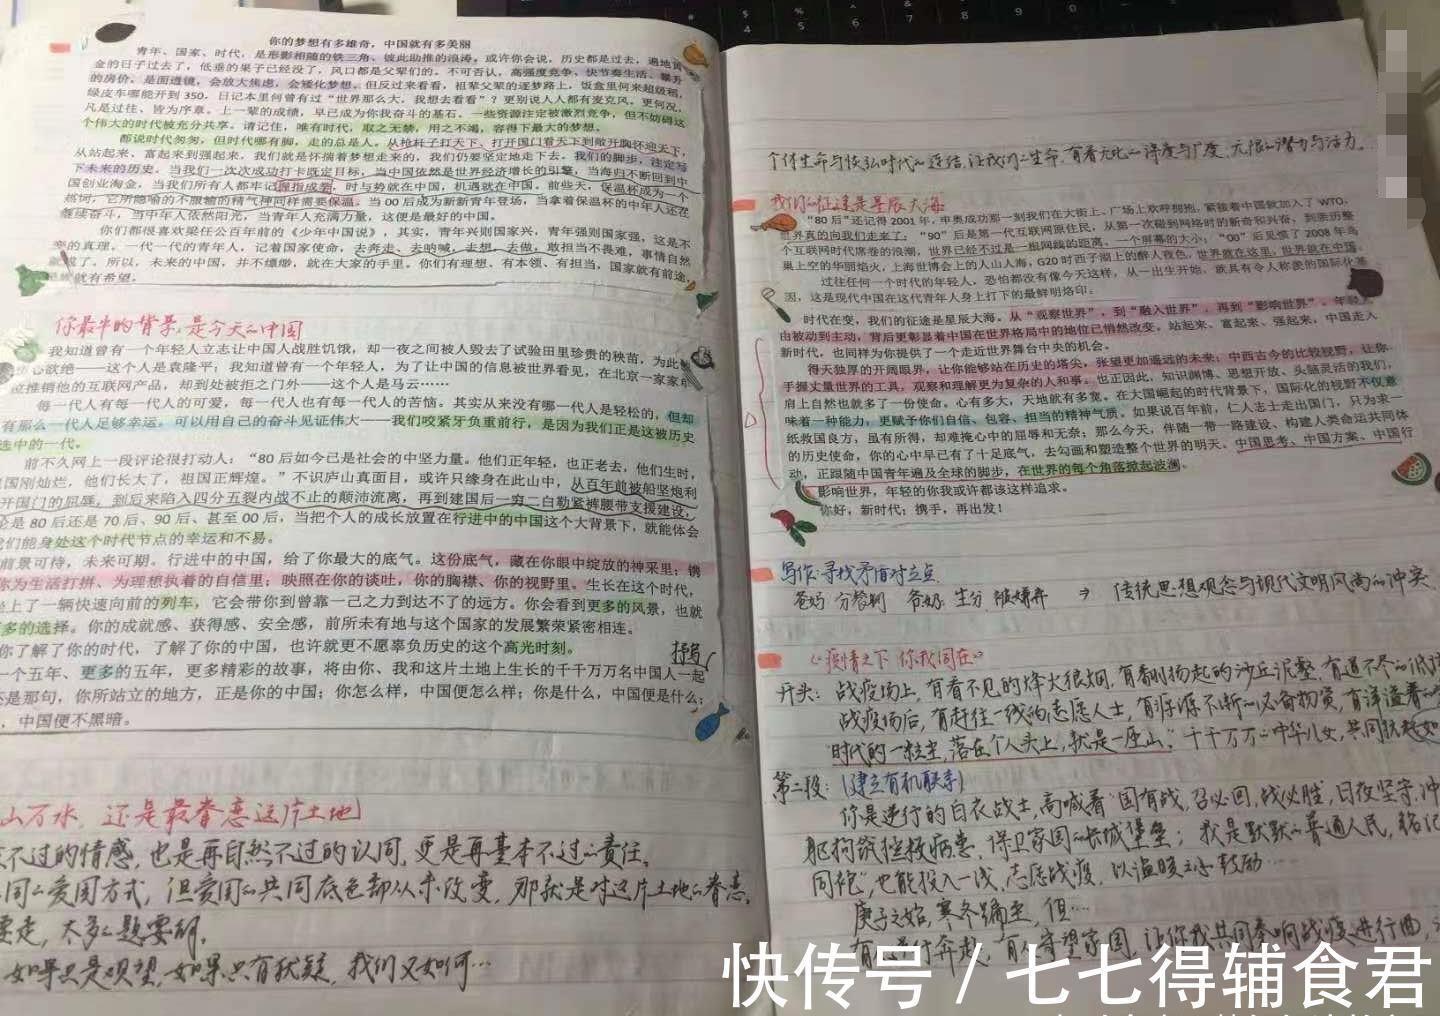 你的梦想有多雄奇，中国就有多美丽
青年、国家、时代，是形影相随的铁三角、彼此助推的浪涛。或许你会说，历史都是过去，遍地黄
金的日子过去了，低垂的果子已经没了，风口都是父辈们的。不可否认，高强度竞争、快节奏生活、攀升
的房价，是面透镜，会放大焦虑，会矮化梦想。但反过来看看，祖辈父辈的逐梦路上，饭盒里何来超级稻，
绿皮车哪能开到 350，日记本里何曾有过“世界那么大，我想去看看”？更别说人人都有麦克风。更何况，
凡是过往、皆为序章。上一辈的成绩，早已成为你我奋斗的基石。一些资源注定被激烈竞争，但不妨碍这
个伟大的时代被充分共享。请记住，唯有时代，取之无禁，用之不竭，容得下最大的梦想。
都说时代匆匆，但时代哪有脚，走的总是人。从枪杆子打天下、打开国门看天下到敞开胸怀迎天下，
从站起来、富起来到强起来，我们就是怀揣着梦想走来的，我们仍要坚定地走下去。我们的脚步，注定写
下未来的历史。当我们一次次成功打卡既定目标，当中国依然是世界经济增长的引擎，当海归不断回到中
国创业淘金，当我们所有人都牢记握指成拳，时与势就在中国，机遇就在中国。前些天，保温杯成为一个
热词，它所隐喻的不服输的精气神同样需要保温。当 00 后成为新新青年登场，当拿着保温杯的中年人还在
继续奋斗，当中年人依然阳光，当青年人充满力量，这便是最好的中国。
你们都很喜欢梁任公百年前的《少年中国说》，其实，青年兴则国家兴，青年强则国家强，这是不
变的真理。一代一代的青年人，记着国家使命，去奔走、去呐喊，去想、去做，敢担当不畏难，事情自然
就成了。所以，未来的中国，并不缥缈，就在大家的手里。你们有理想、有本领、有担当，国家就有前途，
就有希望。
你最牛的背景，是今天的中国
我知道曾有一个年轻人立志让中国人战胜饥饿，却一夜之间被人毁去了试验田里珍贵的秧苗，为此
心欲绝——这个人是袁隆平；我知道曾有一个年轻人，为了让中国的信息被世界看见，在北京一家家
位推销他的互联网产品，却到处被拒之门外——这个人是马云……
每一代人有每一代人的可爱，每一代人也有每一代人的苦恼。其实从来没有哪一代人是轻松的，但却
有那么一代人足够幸运，可以用自己的奋斗见证伟大——我们咬紧牙负重前行，是因为我们正是这被历史
选中的一代。
前不久网上一段评论很打动人：“80 后如今已是社会的中坚力量。他们正年轻，也正老去，他们生时，
国刚灿烂，他们长大了，祖国正辉煌。”不识庐山真面目，或许只缘身在此山中，从百年前被船坚炮利
开国门的屈辱，到后来陷入四分五裂内战不止的颠沛流离，再到建国后一穷二白勒紧裤腰带支援建设，
论是 80 后还是 70 后、90 后、甚至 00 后，当把个人的成长放置在行进中的中国这个大背景下，就能体会
们能身处这个时代节点的幸运和不易。
前景可待，未来可期。行进中的中国，给了你最大的底气。这份底气，藏在你眼中绽放的神采里；镌
你为生活打拼、为理想执着的自信里；映照在你的谈吐，你的胸襟、你的视野里。生长在这个时代，
上了一辆快速向前的列车，它会带你到曾靠一己之力到达不了的远方。你会看到更多的风景，也就
多的选择。你的成就感、获得感、安全感，前所未有地与这个国家的发展繁荣紧密相连。
你了解了你的时代，了解了你的中国，也许就更不愿辜负历史的这个高光时刻。
抄写
一个五年、更多的五年，更多精彩的故事，将由你、我和这片土地上生长的千千万万名中国人一起
还是那句，你所站立的地方，正是你的中国；你怎么样，中国便怎么样；你是什么，中国便是什么；
，中国便不黑暗。
山万水，还是最眷恋这片土地
不过的情感，也是再自然不过的认同，更是再基本不过的责任。
同的爱国方式，但爱国的共同底色却从未改变，那就是对这片土地的眷恋。
要走，太多的题要解，
如果只是观望，如果只有犹疑，我们又如何…
个体生命与恢弘时代的连结，让我们的生命，有着无比的深度与广度，无限的潜力与活力。
我们的征途是星辰大海
“80 后”还记得 2001 年，申奥成功那一刻我们在大街上、广场上欢呼拥抱，紧接着中国就加入了 WTO，
世界真的向我们走来了；“90”后是第一代互联网原住民，从第一次碰到网络时的新奇和兴奋，到亲历整
个互联网时代席卷的浪潮，世界已经不过是一根网线的距离、一个屏幕的大小；“00”后见惯了 2008 年鸟
巢上空的华丽焰火，上海世博会上的人山人海，G20 时西子湖上的醉人夜色，世界就在这里，世界就在中国。
过往任何一个时代的年轻人，恐怕都没有像今天这样，从一出生开始，就具有令人称羡的国际化基
因，这是现代中国在这代青年人身上打下的最鲜明烙印。
时代在变，我们的征途是星辰大海。从“观察世界”，到“融入世界”，再到“影响世界”，年轻
由被动到主动，背后更彰显着中国在世界格局中的地位已悄然改变，站起来、富起来、强起来，中国走入
新时代，也同样为你提供了一个走近世界舞台中央的机会。
得天独厚的开阔眼界，让你能够站在历史的塔尖，张望更加遥远的未来；中西古今的比较视野，让你
手握丈量世界的工具，观察和理解更为复杂的人和事。也正因此，知识渊博、思想开放、头脑灵活的我们，
肩上自然也就多了一份使命。心有多大，天地就有多宽。在大国崛起的时代背景下，国际化的视野不仅意
味着一种能力，更赋予你们自信、包容、担当的精神气质。如果说百年前，仁人志士走出国门，只为求一
纸救国良方，虽有所得，却难掩心中的屈辱和无奈；那么今天，伴随一带一路建设、构建人类命运共同体
的历史使命，你的心中早已有了十足底气，去勾画和塑造整个世界的明天。中国思考、中国方案、中国行
动，正跟随中国青年遍及全球的脚步，在世界的每个角落掀起波澜。
影响世界，年轻的你我或许都该这样追求。
你好，新时代；携手，再出发！
写作：寻找矛盾对立点
爸妈 分餐制 爷奶 生分 → 传统思想观念与现代文明风尚的冲突
《疫情之下 你我同在》
开头：战疫场上，有看不见的烽火狼烟，有翻扬起的沙丘泥壑，有道不尽的
战疫场后，有赶往一线的志愿人士，有源源不断的必备物资，有洋溢着的
“时代的一粒尘，落在个人头上，就是一座山。”千千万万的中华儿女，共同抗起
第二段：（建立有机联系）
你是逆行的白衣战士，高喊着“国有战，召必回，战必胜，日夜坚守，冲
躯拘欲拯救病患，保卫家国的长城堡垒；我是默默的普通人民，铭记
同袍”，也能投入一线，志愿战疫，以温暖之小鼓励……
庚子之始，寒冬踊至，但…
有人逆行奔走，有人守望家国，让你我共同奏响战疫进行曲，
快传号 / 七七得辅食君